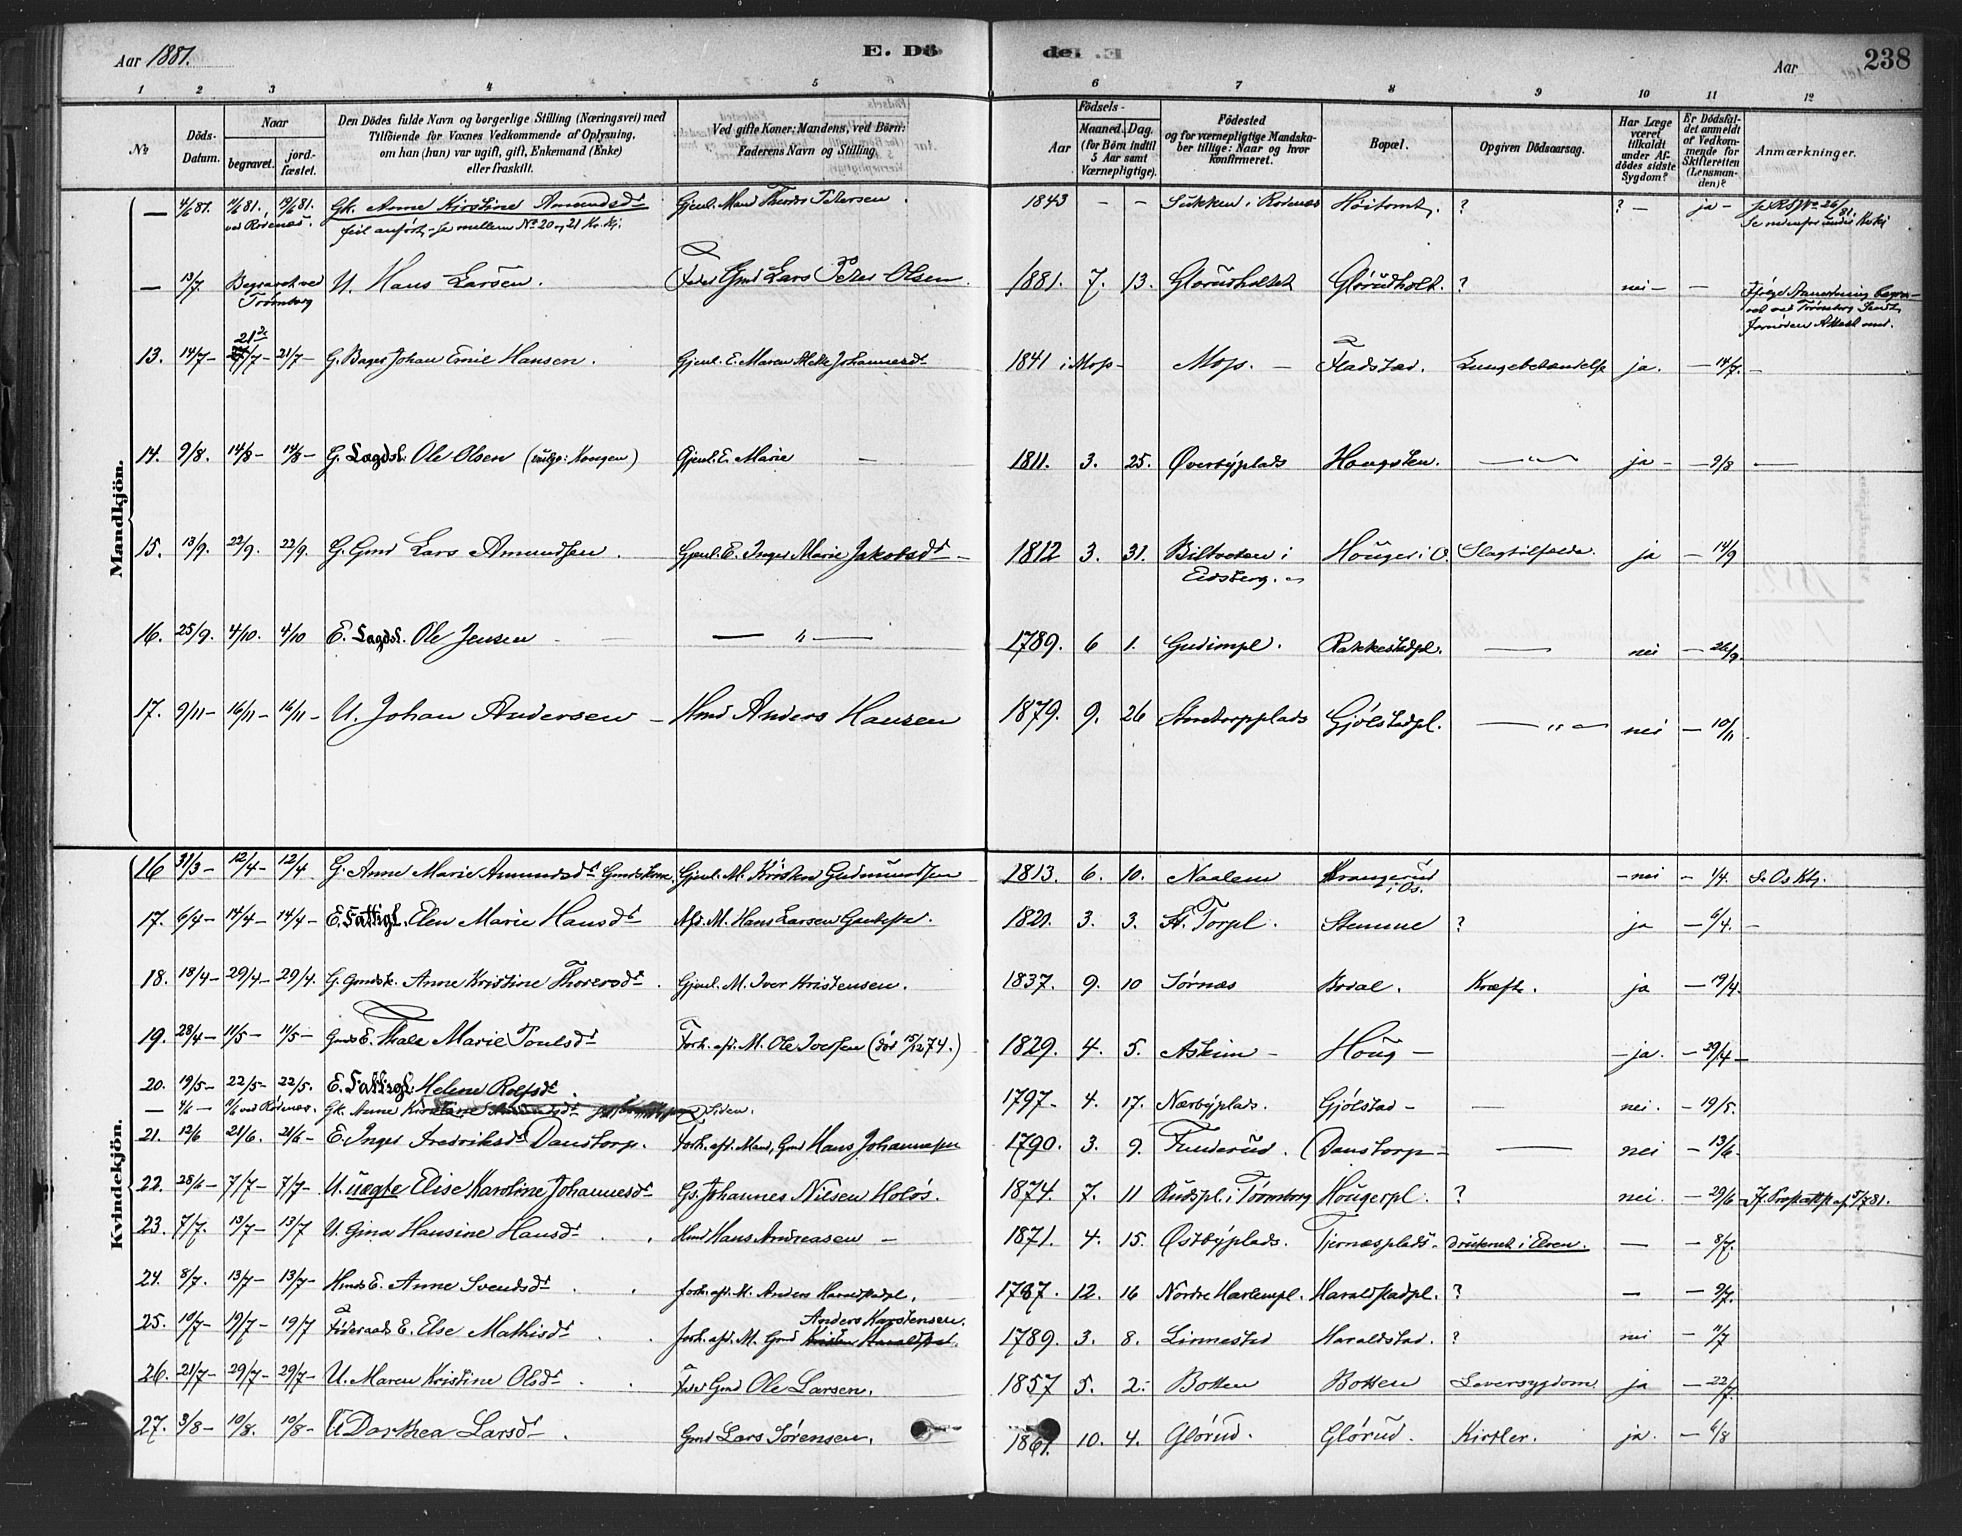 Aar 1881.
E. Dö
de. E
Aar
238
1 2 3 4 5 6 7 8 9 10 11 12
No
Döds-Datum.
Naar begravet. jordfæstet.
Den Dödes fulde Navn og borgerlige Stilling (Næringsvei) med Tilföiende for Voxnes Vedkommende af Oplysning, om han (hun) var ugift, gift, Enkemand (Enke) eller fraskilt.
Ved gifte Koner: Mandens, ved Börn: Faderens Navn og Stilling.
Födsels-
Aar
Maaned. Dag. (for Börn indtil 5 Aar samt Værnepligtige).
Födested og for værnepligtige Mandskaber tillige: Naar og hvor konfirmeret.
Bopæl.
Opgiven Dödsaarsag.
Har Læge været tilkaldt under Afdödes sidste Sygdom?
Er Dödsfaldet anmeldt af Vedkommende for Skifteretten (Lensmanden)?
Anmærkninger.
Mandkjön.
— 4/6 81. 11/6 81. 19/6 81. Gk. Anne Kirstine Amundsdt Gjenl. Mand Thorer Petersen. 1843 – – Sukken i Rødenæs Høitomt. ? ? – ja –
ved Rødenæs. feil anført – se mellem No 20 og 21 Kv.kj.
— 13/7 Begravet ved Trømborg U. Hans Larsen. Fader Gmd Lars Peter Olsen. 1881. 7. 13. Glørudholtet Glørudholt. ? nei – –
13. 14/7 – 21/7 – 21/7 – G. Bager Johan Emil Hansen. Gjenl. E. Maren Helle Johannesdt 1841 i Moss – Moss. – Fladstad. Lungebetændelse ja. – 14/7. –
14. 9/8. 14/8 – 14/8 – G. Lagdsl. Ole Olsen (vulgo: Kongen) Gjenl. E. Marie — 1811. 3. 25. Øverbyplads Hougsten. — " — ja – – 9/8 —
15. 13/9. 22/9. 22/9. G. Gmd Lars Amundsen. Gjenl. E. Inger Marie Jakobsdt – 1812 3. 31. Biltveten i Eidsberg. Houger i O. Slagtilfælde. ja – 14/9
16. 25/9. 4/10. 4/10 E. Lagdsl. Ole Jensen — " — 1789. 6 1. Gudimpl. Rakkestadpl. — nei – 26/9.
17. 9/11 – 16/11 – 16/11 – U. Johan Andersen – Hmd Anders Hansen 1879. 9. 26 Storetorpplads Gjølstadpl. — " — nei – 10/11
Kvindekjön.
16 31/3 – 12/4 – 12/4 G. Anne Marie Amundsdt Gmdskone. Gjenl. M. Kristen Gudmundsen 1813. 6. 10. Naalem Krangerud i Os. – nei – 1/4. Se Os Kbg.
17. 6/4 – 14/4 – 14/4 – E. Fattigl. Elen Marie Hansdt Afd. M. Hans Larsen 1821. 3. 3. St. Torpl. Stemme ? ja – 6/4. –
18. 18/4 – 29/4 – 29/4. G. Gmdsk. Anne Kristine Thorersdt. Gjenl. M. Iver Kristensen. 1837. 9. 10 Sørnæs Bodal. Kræft. ja – 19/4.
19. 28/4 – 11/5 – 11/5 – Gmds E. Thale Marie Poulsdt Forh. afd. M. Ole Iversen (død 15/12 74.) 1829. 4. 5. Askim – Houg – – ja. – 29/4 –
20. 19/5 – 22/5 – 22/5. E. Fattigl. Helene Rolfsdt. 1797 – 4. 17. Nærbyplads. Gjølstad – — nei. – 19/5.
— 4/6 – 11/6 ved Rødenæs. Gk. Anne Kirstine Amundsdt
21. 12/6 21/6. 21/6 – E. Inger Fredriksdt Danstorp. Forh. afd. Mand, Gmd Hans Johannesen 1790. 3. 9. Funderud. Danstorp – — nei – 13/6 –
22. 28/6 – 7/7 – 7/7 – U. uægte Elise Karoline Johannesdt Gs. Johannes Nilsen Holøs. 1874. 7. 11 Rudspl. i Trømborg Hougerpl. ? nei. – 29/6 –
23. 7/7. 13/7 – 13/7 U. Gina Hansine Hansdt Hmd Hans Andreasen – 1871. 4. 15. Østbyplads. Tjernæsplads – druknet i Elven. — – 8/7.
24. 8/7. 13/7 – 13/7 – Hmds E. Anne Svendsdt forh. afd. M. Anders Haraldstadpl. 1787. 12. 16 Nordre Harlempl. Haraldstadpl. ? – – 9/7.
25. 10/7 – 19/7 – 19/7 Føderaads E. Else Mathisdt forh. afd. M. Gmd Anders Karstensen. 1789. 3. 8. Linnestad Haraldstad. ? nei – 11/7
26. 21/7 – 29/7 – 29/7 – U. Maren Kristine Olsdt Fader Gmd Ole Larsen. 1857 5. 2. Botten Botten Leversygdom ja – 22/7.
27. 3/8 – 10/8. 10/8 – U Dorthea Larsdt – Gmd Lars Sørensen. 1861. 10. 4. Glørud. Glørud. Kirtler. ja. – 6/8